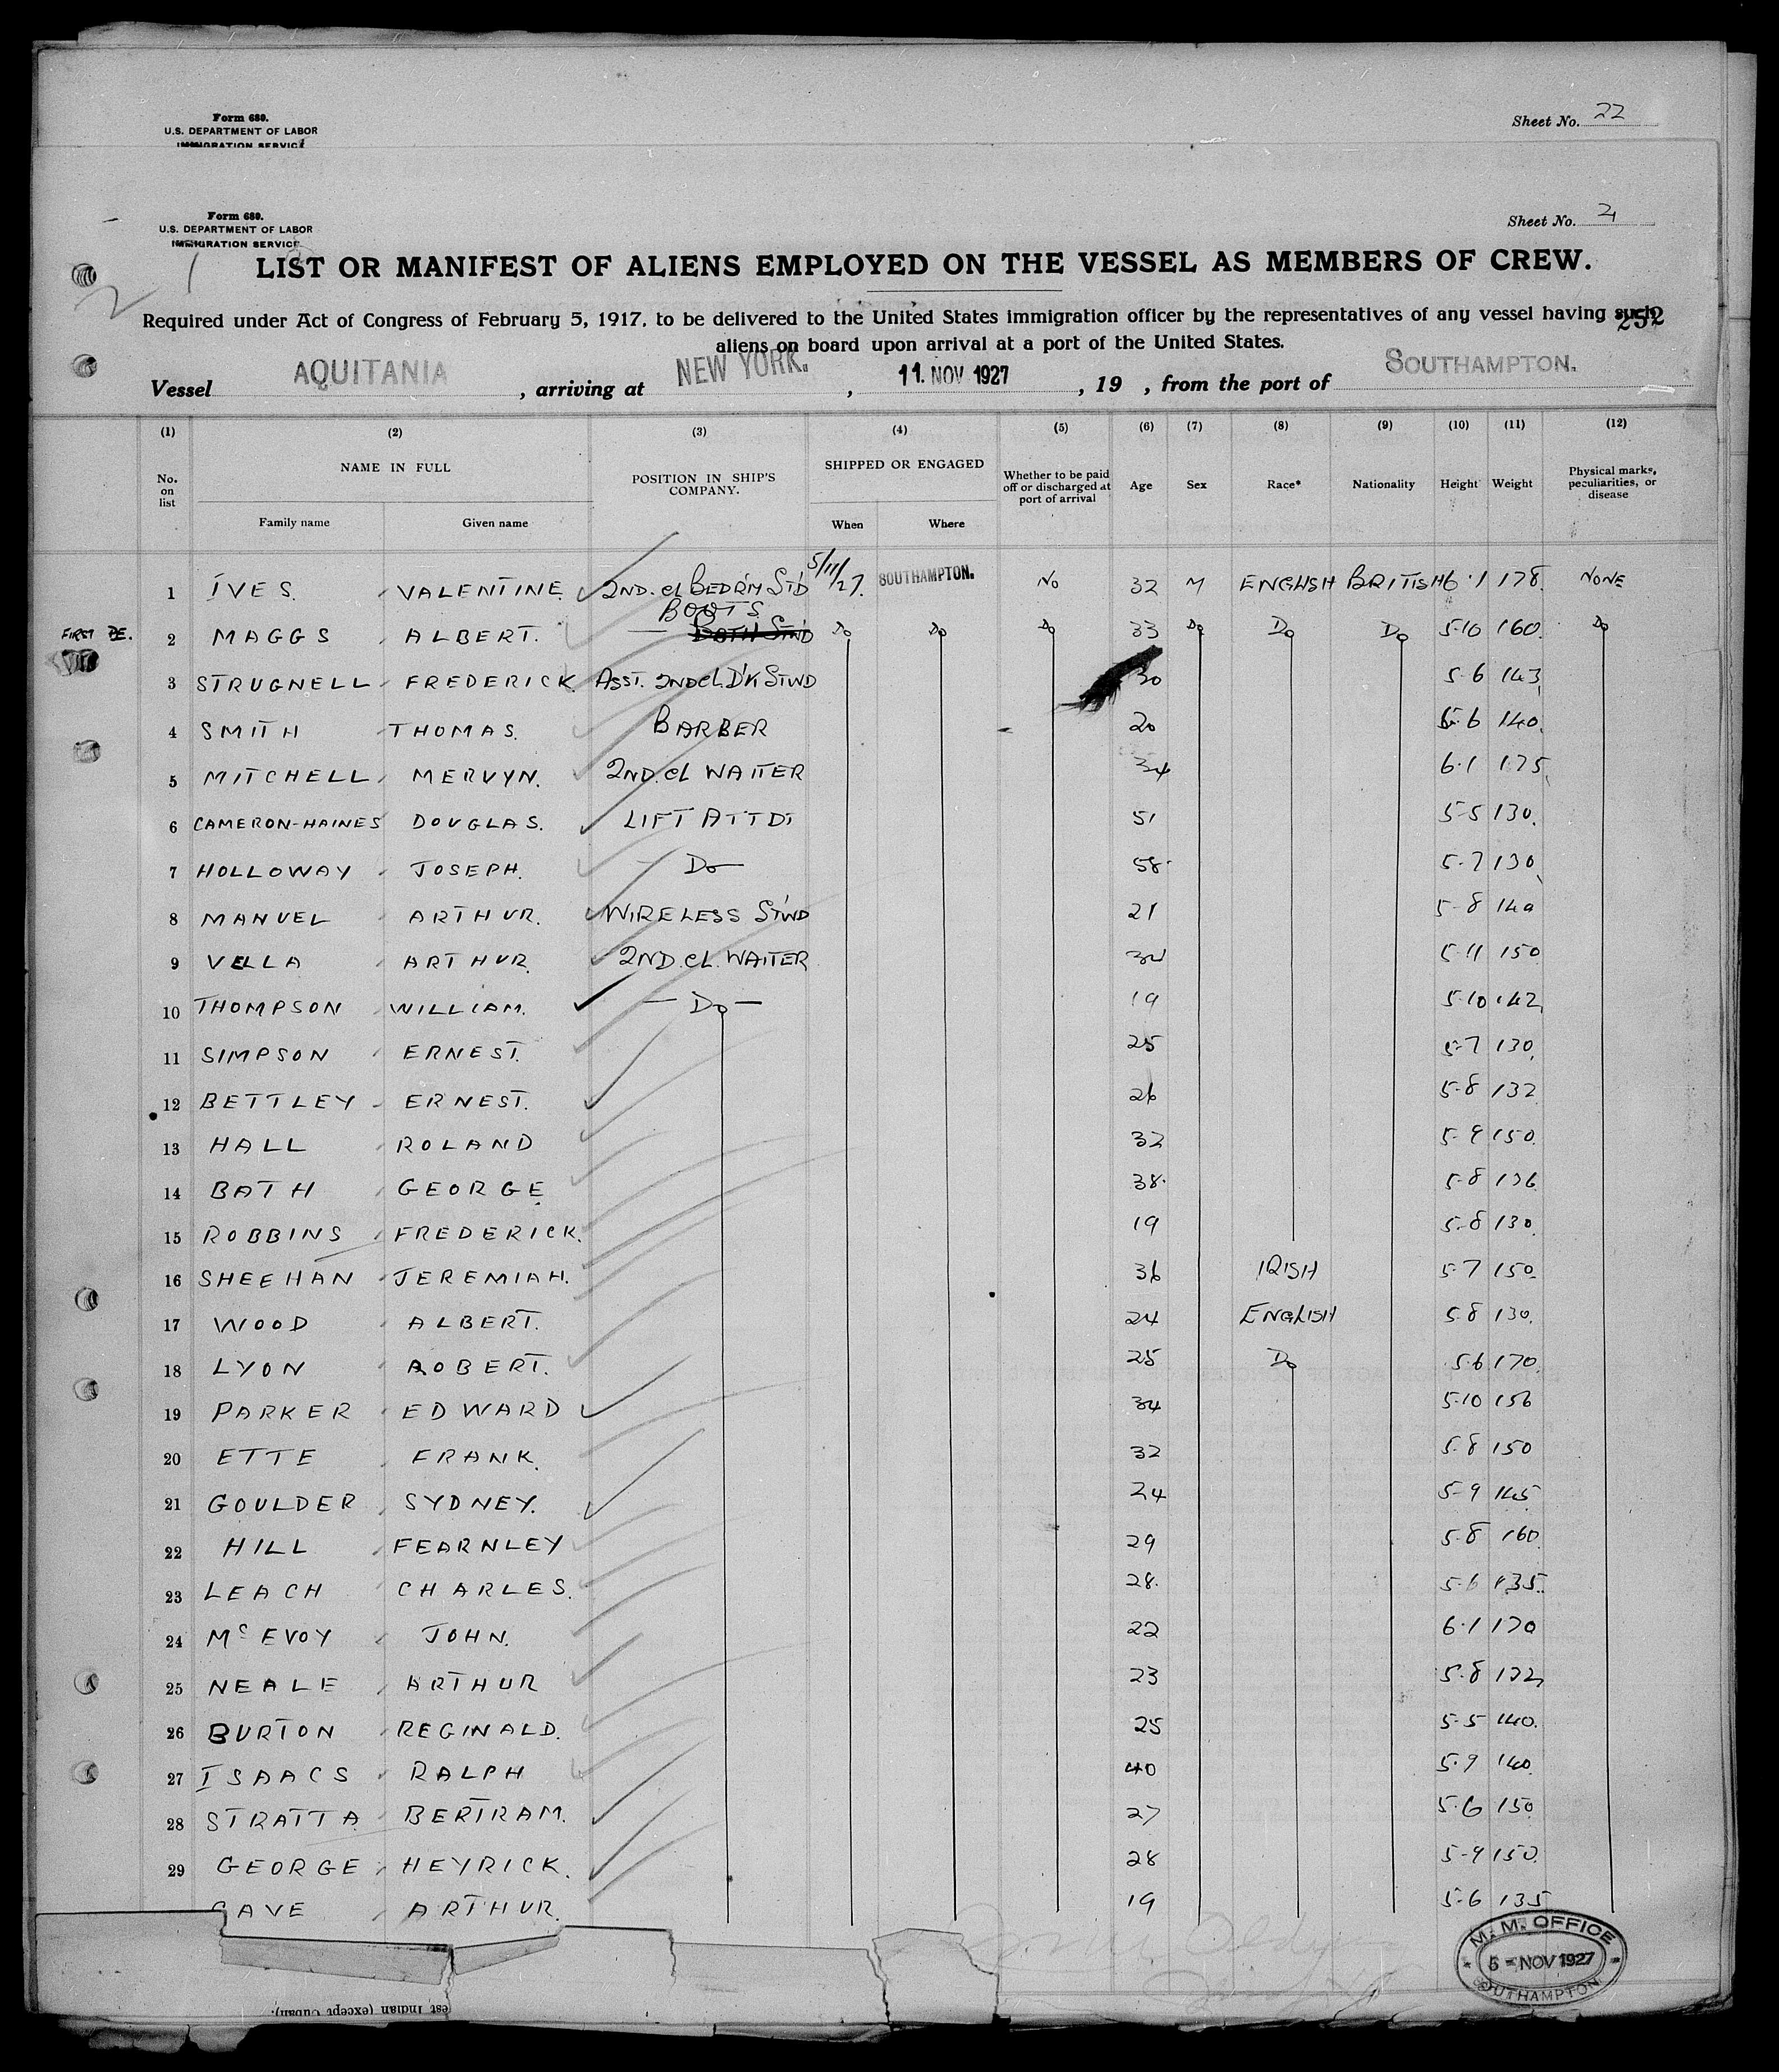 Form 680.
U.S. DEPARTMENT OF LABOR
IMMIGRATION SERVICE
Sheet No. 22
Form 680.
U.S. DEPARTMENT OF LABOR
IMMIGRATION SERVICE
Sheet No. 21
LIST OR MANIFEST OF ALIENS EMPLOYED ON THE VESSEL AS MEMBERS OF CREW.
Required under Act of Congress of February 5, 1917, to be delivered to the United States immigration officer by the representatives of any vessel having such
252
aliens on board upon arrival at a port of the United States.
Vessel AQUITANIA, arriving at NEW YORK., 11. NOV 1927, 19 , from the port of SOUTHAMPTON.
(1) (2) (3) (4) (5) (6) (7) (8) (9) (10) (11) (12)
No. on list NAME IN FULL POSITION IN SHIP'S COMPANY. SHIPPED OR ENGAGED Whether to be paid off or discharged at port of arrival Age Sex Race* Nationality Height Weight Physical marks, peculiarities, or disease
Family name Given name When Where
1 IVES. VALENTINE 2ND. CL BEDR'M ST'D 5/11/27. SOUTHAMPTON. No 32 M ENGLISH BRITISH 6·1 178. NONE
BOOTS
FIRST 2 MAGGS ALBERT. — BATH STWD Do Do Do 33 Do Do Do 5·10 160. Do
3 STRUGNELL FREDERICK. ASST. 2ND CL. D'K STWD 30 5·6 143
4 SMITH THOMAS. BARBER 20 5·6 140.
5 MITCHELL MERVYN. 2ND. CL WAITER 34 6·1 175
6 CAMERON-HAINES DOUGLAS. LIFT ATTDT 51 5-5 130.
7 HOLLOWAY JOSEPH. — Do — 58 5·7 130
8 MANUEL ARTHUR. WIRELESS STWD 21 5-8 140
9 VELLA ARTHUR. 2ND. CL. WAITER 34 5·11 150
10 THOMPSON WILLIAM. — Do — 19 5·10 142
11 SIMPSON ERNEST. 25 5·7 130
12 BETTLEY ERNEST. 26 5-8 132
13 HALL ROLAND 32 5-9 150.
14 BATH GEORGE 38· 5-8 136
15 ROBBINS FREDERICK. 19 5-8 130.
16 SHEEHAN JEREMIAH. 36 IRISH 5·7 150
17 WOOD ALBERT. 24 ENGLISH 5·8 130.
18 LYON ROBERT. 25 Do 5·6 170.
19 PARKER EDWARD 34 5·10 156
20 ETTE FRANK. 32 5·8 150
21 GOULDER SYDNEY. 24 5-9 145
22 HILL FEARNLEY 29 5-8 160
23 LEACH CHARLES. 28. 5·6 135.
24 McEVOY JOHN. 22 6·1 170
25 NEALE ARTHUR 23 5·8
26 BURTON REGINALD. 25 5-5 140.
27 ISAACS RALPH 40 5·9 140
28 STRATTA BERTRAM. 27 5·6 150
29 GEORGE HEYRICK. 28 5-9 150.
ARTHUR. 19 5-6 135
M. M. OFFICE
5 - NOV 1927
SOUTHAMPTON
est Indian (except Cuban).